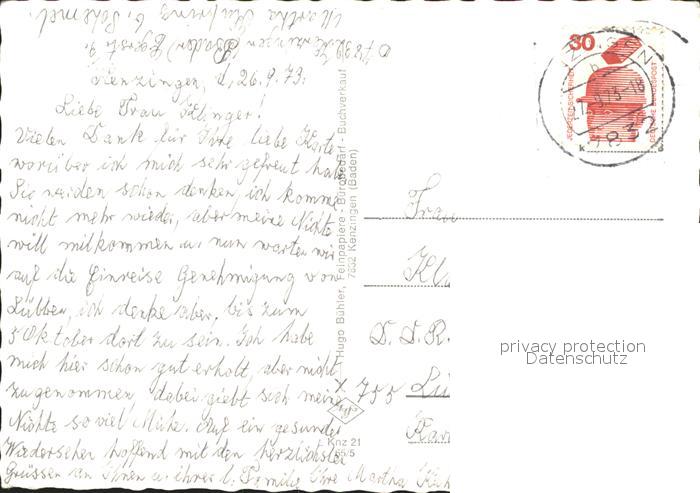 Kenzingen, d, 26.9.73.
Liebe Frau
Vielen Dank für Ihre liebe Karte
worüber ich mich sehr gefreut hab
Sie werden schon denken ich komme
nicht mehr wieder, aber meine Nichte
will mitkommen u. nun warten wir
auf die Einreise Genehmigung von
Lübben, ich denke aber, bis zum
5 Oktober dort zu sein. Ich habe
mich hier schon gut erholt, aber nicht
zugenommen, dabei giebt sich meine
Nichte so viel Mühe. Auf ein gesundes
Wiedersehen hoffend mit den herzlichsten
Grüssen an Ihnen u. ihrer l. Familie Ihre Martha
Hugo Bühler, Feinpapiere - Bürobedarf - Buchverkauf
7832 Kenzingen (Baden)
Knz 21
65/5
30
JEDERZEIT SICHERHEIT
DEUTSCHE BUNDESPOST
7832
Frau
Kl
D. D. R.
X 755 Lü
privacy protection
Datenschutz